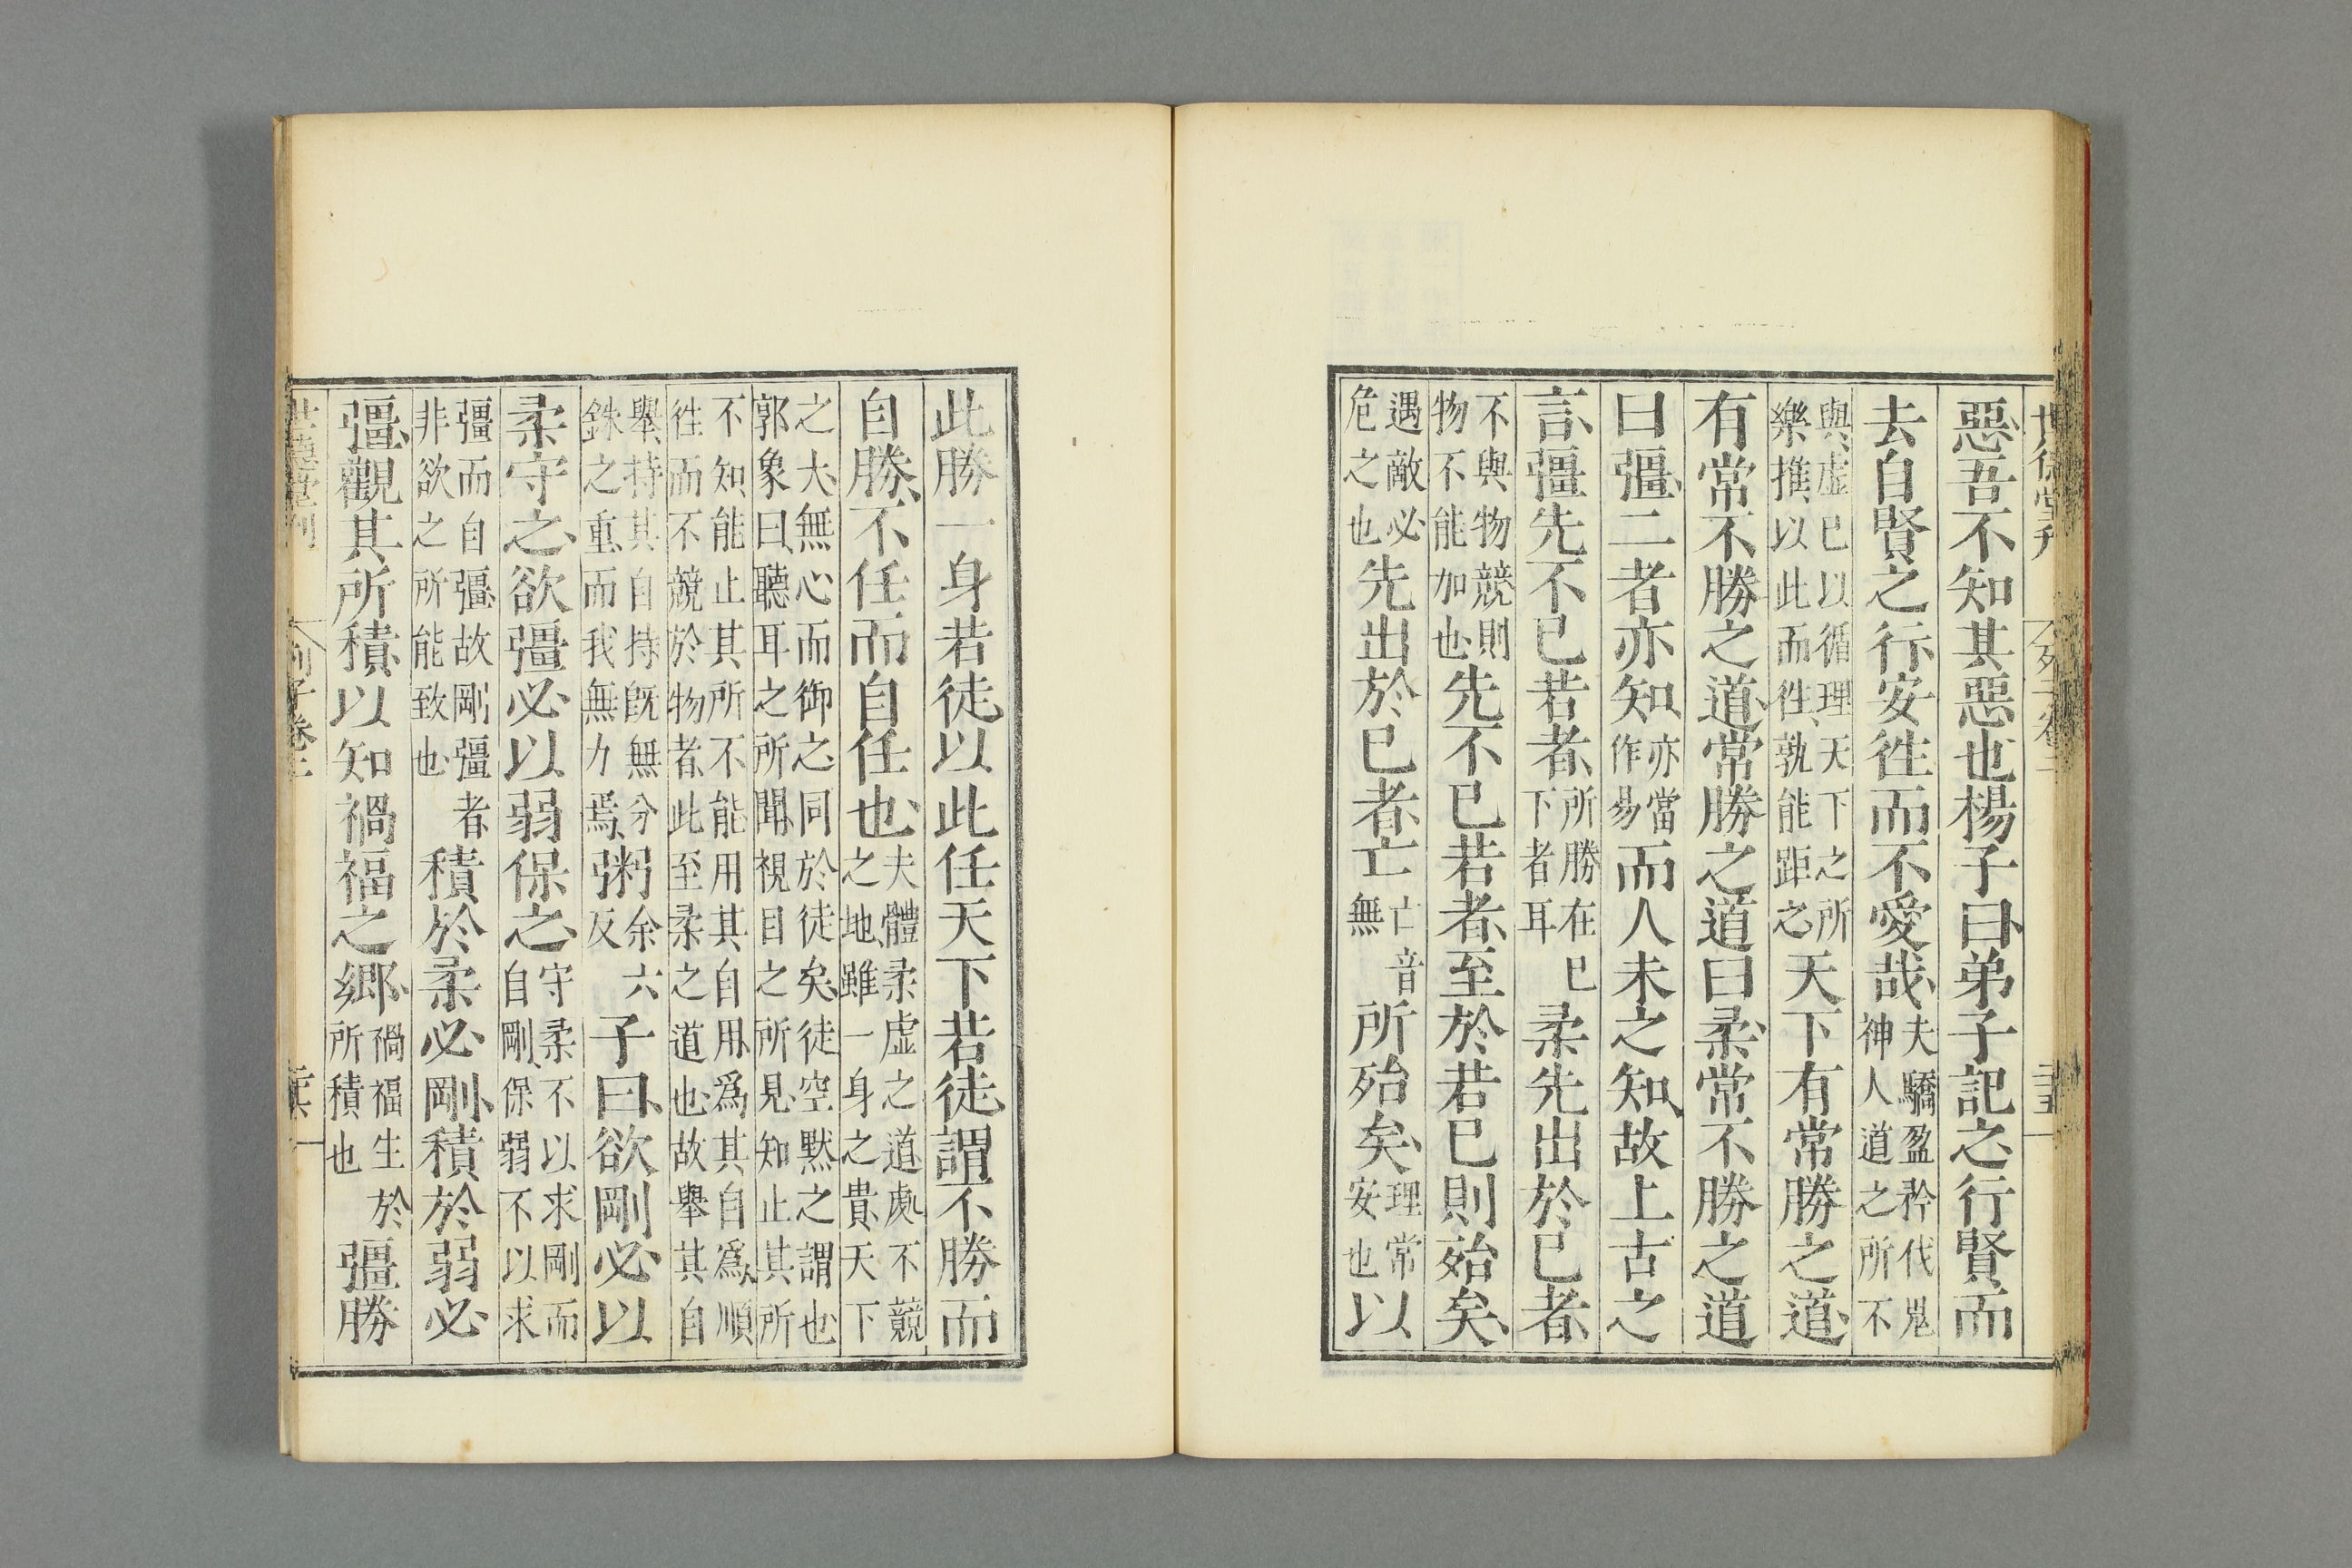 惡吾不知其惡也楊子曰弟子記之行賢而
去自賢之行安徃而不愛哉夫驕盈矜伐鬼神人道之所不
與虛己以循理天下之所樂推以此而徃孰能距之天下有常勝之道
有常不勝之道常勝之道曰柔常不勝之道
曰彊二者亦知亦當作易而人未之知故上古之
言彊先不已若者所勝在已下者耳柔先出於已者
不與物競則物不能加也先不已若者至於若已則殆矣
遇敵必危之也先出於已者亡亡音無所殆矣理常安也以
此勝一身若徒以此任天下若徒謂不勝而
自勝不任而自任也夫體柔虛之道處不競之地雖一身之貴天下
之大無心而御之同於徒矣徒空默之謂也郭象曰聽耳之所聞視目之所見知止其所
不知能止其所不能用其自用爲其自爲順徃而不競於物者此至柔之道也故舉其自
舉持其自持旣無分銖之重而我無力焉粥余六反子曰欲剛必以
柔守之欲彊必以弱保之守柔不以求剛而自剛保弱不以求
彊而自彊故剛彊者非欲之所能致也積於柔必剛積於弱必
彊觀其所積以知禍福之鄉禍福生於所積也彊勝